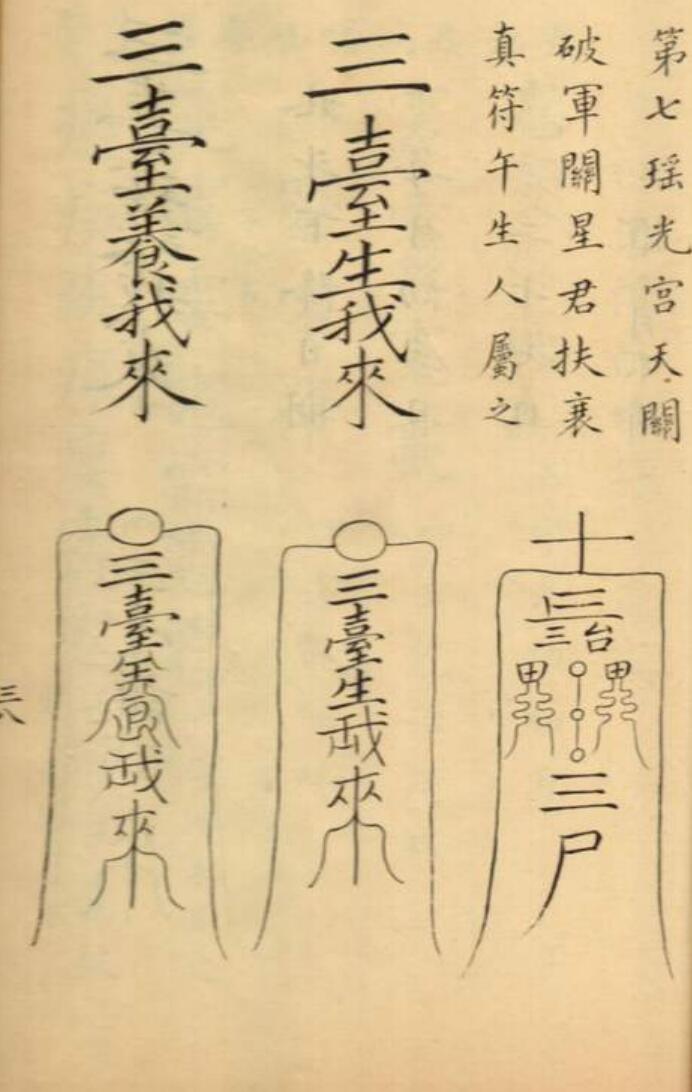 第七瑤光宮天關
破軍關星君扶衰
真符午生人屬之
三臺生我來
三臺養我來
三台
三
三尸
三臺生我來
三臺養我來
三八